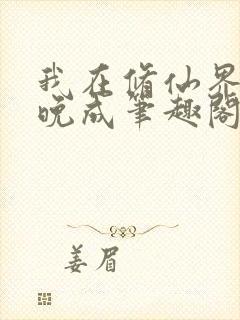 我在脩仙界
晚成笔趣阁
姜眉